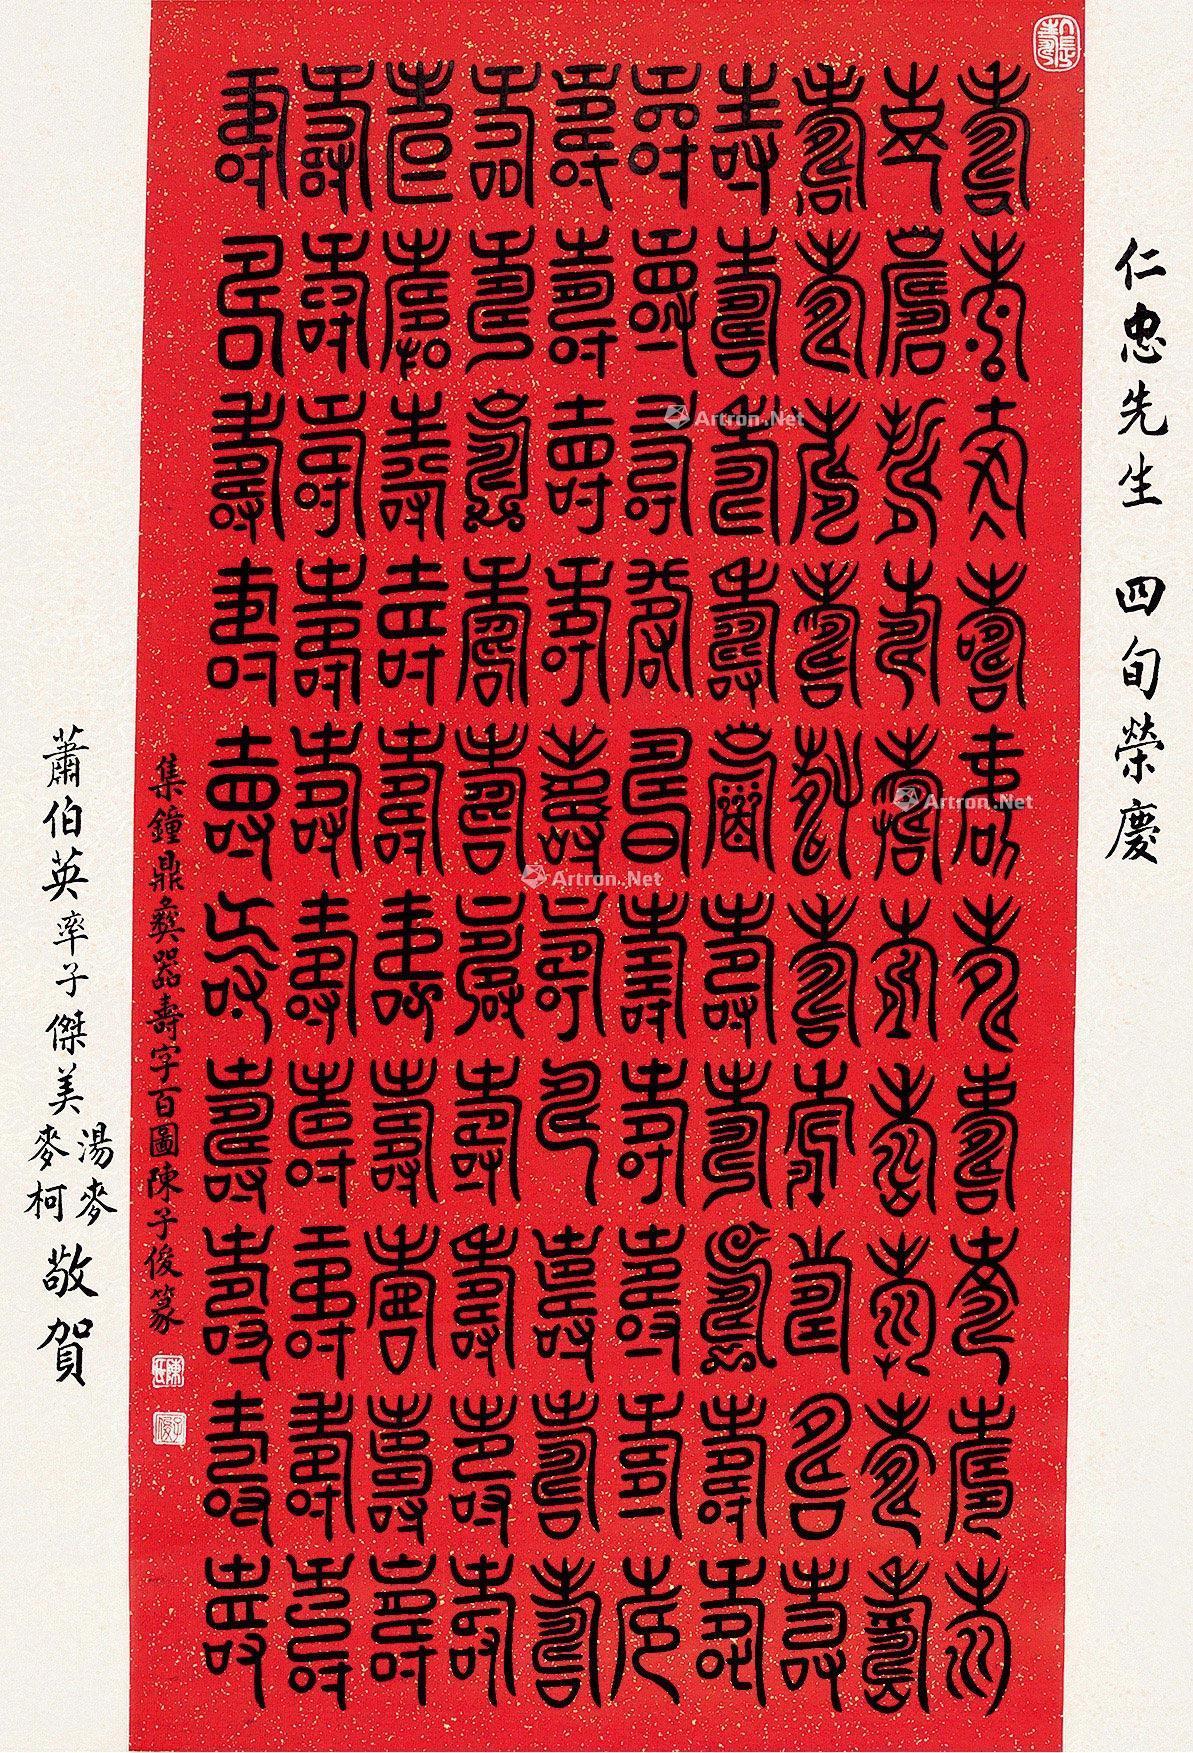 仁忠先生 四旬榮慶
壽壽壽壽壽壽壽壽壽壽
壽壽壽壽壽壽壽壽壽壽
壽壽壽壽壽壽壽壽壽壽
壽壽壽壽壽壽壽壽壽壽
壽壽壽壽壽壽壽壽壽壽
壽壽壽壽壽壽壽壽壽壽
壽壽壽壽壽壽壽壽壽壽
壽壽壽壽壽壽壽壽壽壽
壽壽壽壽壽壽壽壽壽壽
壽壽壽壽壽壽壽壽壽壽
集鐘鼎彝器壽字百圖陳子俊篆
蕭伯英率子傑美湯麥麥柯敬賀
Artron.Net
Artron.Net
Artron.Net